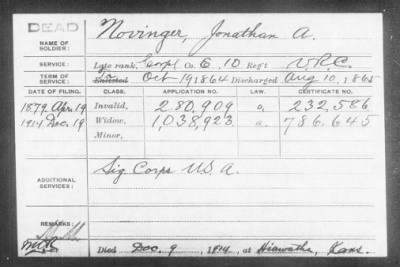 DEAD
NAME OF SOLDIER: Novinger, Jonathan A.
SERVICE: Late rank, Corpl Co. E. 10 Reg't V.R.C.
TERM OF SERVICE: Enlisted Oct 19 1864 Discharged Aug 10, 1865
DATE OF FILING. CLASS. APPLICATION NO. LAW. CERTIFICATE NO.
1879 Apr. 19 Invalid, 280,909 232,586
1914 Dec. 19 Widow, 1,038,923 786,645
Minor,
ADDITIONAL SERVICES: Sig Corps U.S.A.
REMARKS:
Died Dec. 9, 1914, at Hiawatha, Kans.